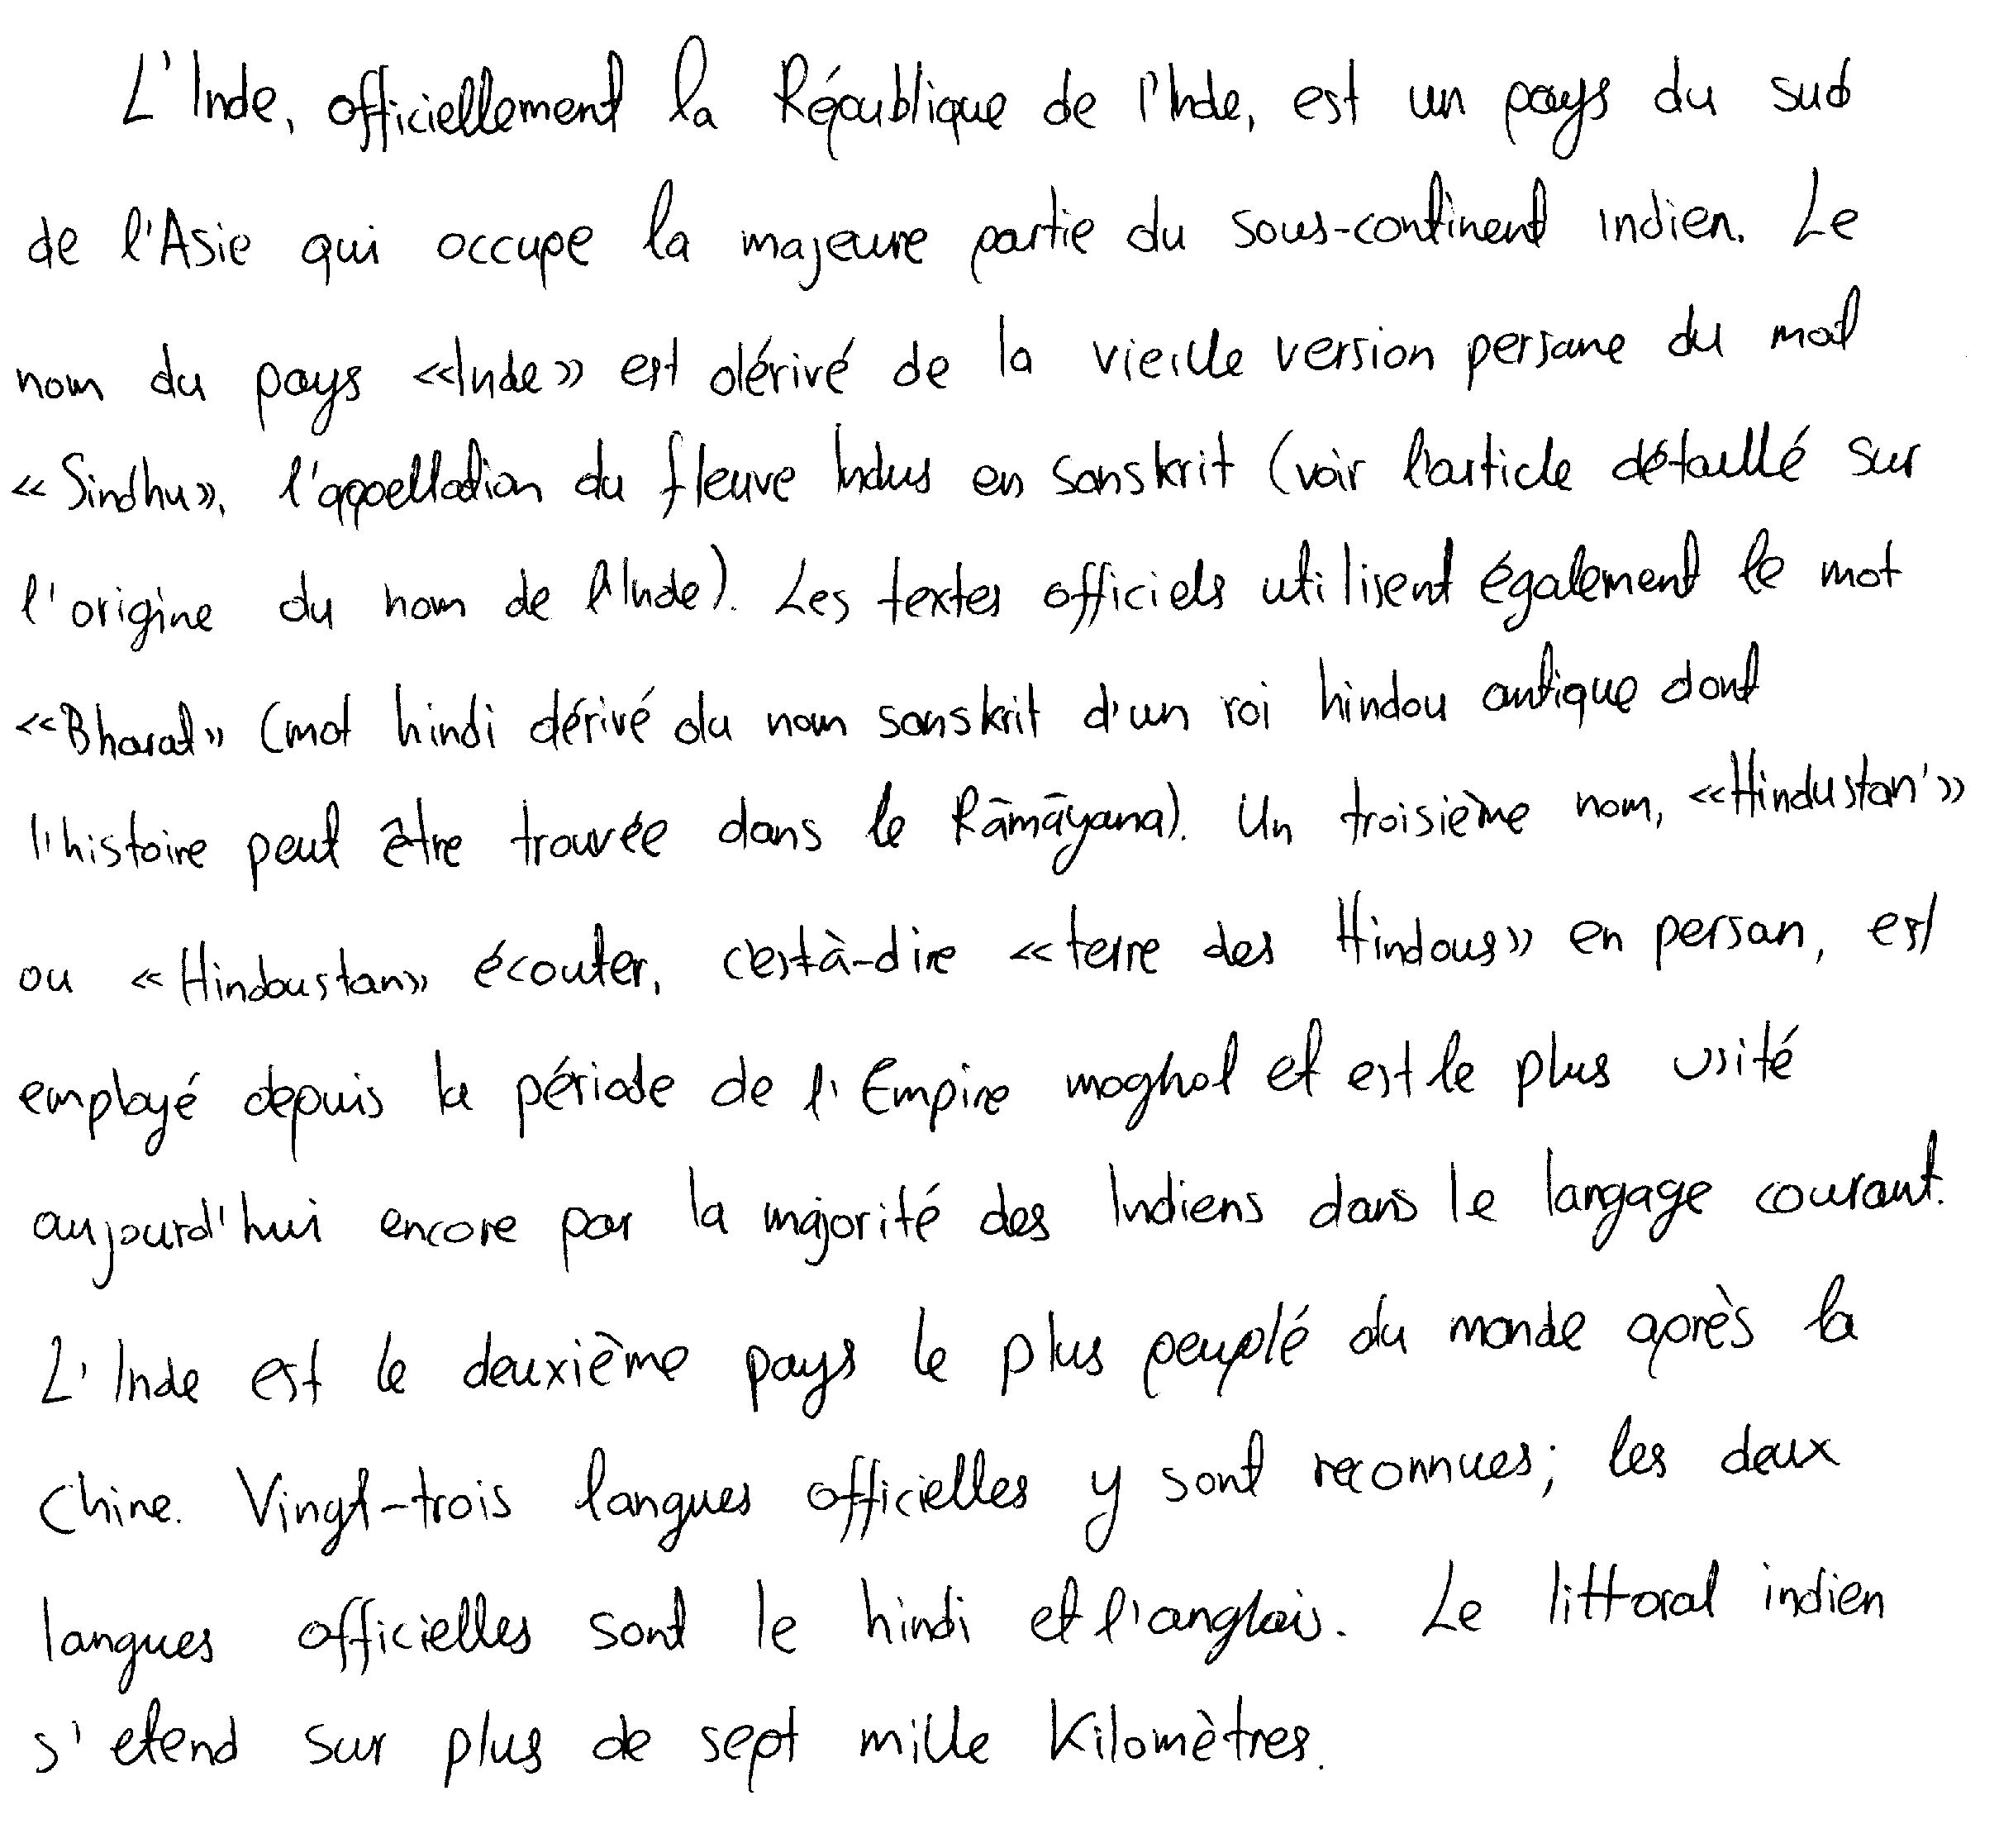 L'Inde, officiellement la République de l'Inde, est un pays du sud
de l'Asie qui occupe la majeure partie du sous-continent indien. Le
nom du pays «Inde» est dérivé de la vieille version persane du mot
«Sindhu», l'appellation du fleuve Indus en sanskrit (voir l'article détaillé sur
l'origine du nom de l'Inde). Les textes officiels utilisent également le mot
«Bharat» (mot hindi dérivé du nom sanskrit d'un roi hindou antique dont
l'histoire peut être trouvée dans le Rāmāyana). Un troisième nom, «Hindustan'»
ou «Hindoustan» écouter, c'està-dire «terre des Hindous» en persan, est
employé depuis la période de l'Empire moghol et est le plus usité
aujourd'hui encore par la majorité des Indiens dans le langage courant.
L'Inde est le deuxième pays le plus peuplé du monde après la
Chine. Vingt-trois langues officielles y sont reconnues; les deux
langues officielles sont le hindi et l'anglais. Le littoral indien
s'etend sur plus de sept mille Kilomètres.